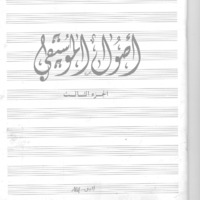 أصول الموسيقى
الجزء الثالث